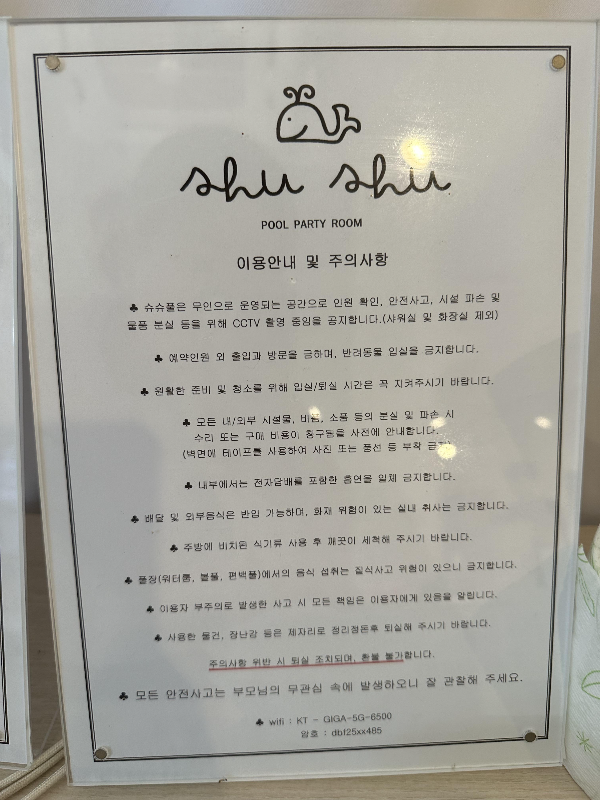 shu shu
POOL PARTY ROOM
이용안내 및 주의사항
♣ 슈슈풀은 무인으로 운영되는 공간으로 인원 확인, 안전사고, 시설 파손 및
물품 분실 등을 위해 CCTV 촬영 중임을 공지합니다.(샤워실 및 화장실 제외)
♣ 예약인원 외 출입과 방문을 금하며, 반려동물 입실을 금지합니다.
♣ 원활한 준비 및 청소를 위해 입실/퇴실 시간은 꼭 지켜주시기 바랍니다.
♣ 모든 내/외부 시설물, 비품, 소품 등의 분실 및 파손 시
수리 또는 구매 비용이 청구됨을 사전에 안내합니다.
(벽면에 테이프를 사용하여 사진 또는 풍선 등 부착 금지)
♣ 내부에서는 전자담배를 포함한 흡연을 일체 금지합니다.
♣ 배달 및 외부음식은 반입 가능하며, 화재 위험이 있는 실내 취사는 금지합니다.
♣ 주방에 비치된 식기류 사용 후 깨끗이 세척해 주시기 바랍니다.
♣ 풀장(워터룸, 볼풀, 편백풀)에서의 음식 섭취는 질식사고 위험이 있으니 금지합니다.
♣ 이용자 부주의로 발생한 사고 시 모든 책임은 이용자에게 있음을 알립니다.
♣ 사용한 물건, 장난감 등은 제자리로 정리정돈후 퇴실해 주시기 바랍니다.
주의사항 위반 시 퇴실 조치되며, 환불 불가합니다.
♣ 모든 안전사고는 부모님의 무관심 속에 발생하오니 잘 관찰해 주세요.
♣ wifi : KT - GIGA-5G-6500
암호 : dbf25xx485